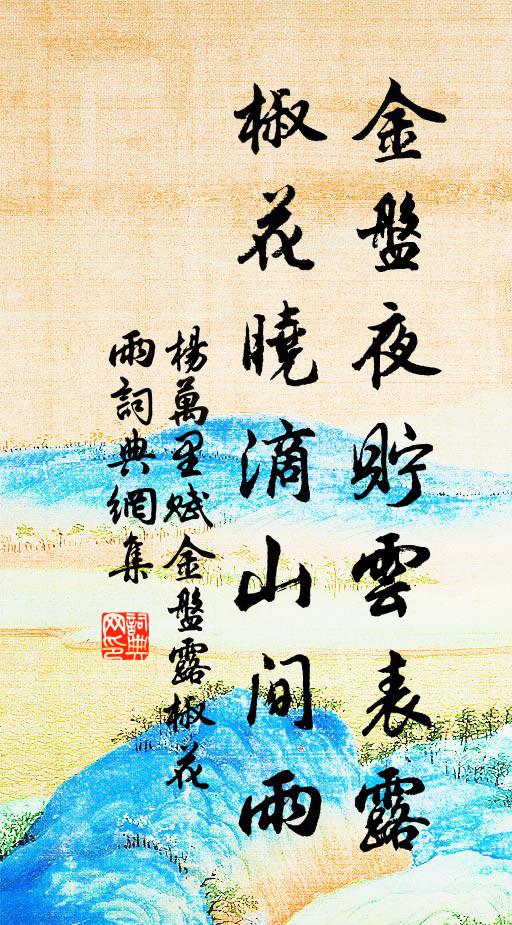 金盤夜貯雲表露
椒花曉滴山間雨
楊萬里賦金盤露椒花
雨詞典網集
詞典
网印